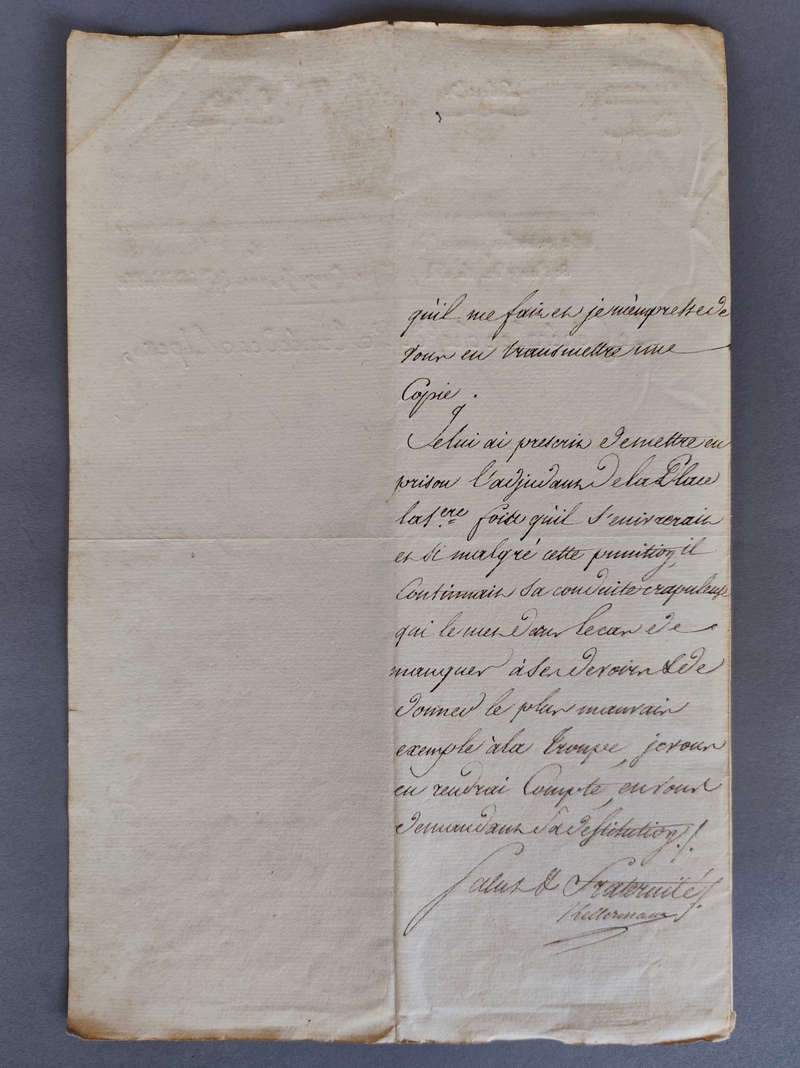 qu'il me fait et je m'empresse de
vous en transmettre une
Copie.
Je lui ai prescrit de mettre en
prison l'adjudant de la Place
la 1ere fois qu'il s'enivrerait
et si malgré cette punition, il
Continuait sa conduite crapuleuse
qui le met dans le cas de
manquer à ses devoirs & de
donner le plus mauvais
exemple à la troupe, je vous
en rendrai Compte, en vous
demandant sa destitution ./.
Salut & Fraternité ./.
Kellermann